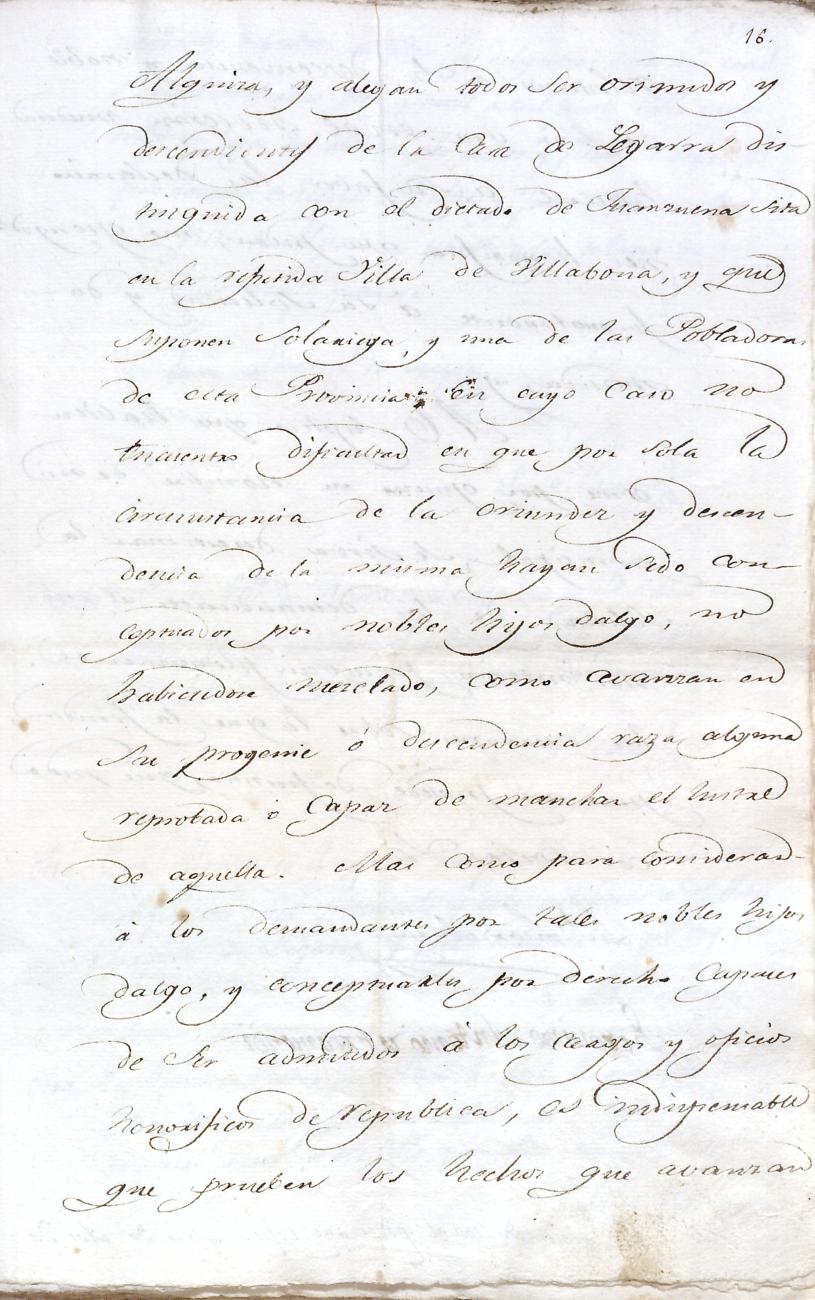 16.
Alquiza, y alegan todos ser oriundos y
descendientes de la Casa de Legarra dis-
tinguida con el dictado de Juanzuena sita
en la repetida Villa de Villabona, y que
suponen Solariega, y una de las Pobladoras
de esta Provincia. En cuyo caso no
encuentro dificultad en que por sola la
circunstancia de la oriundez y descen-
dencia de la misma hayan sido con-
ceptuados por nobles hijos dalgo, no
habiendose mezclado, como avanzan en
su progenie ó descendencia raza alguna
reprobada ó capaz de manchar el lustre
de aquella. Mas como para considerar
à los demandantes por tales nobles hijos
dalgo, y conceptuarles por derecho capaces
de ser admitidos à los cargos y oficios
honorificos de republica, es indispensable
que prueben los hechos que avanzan